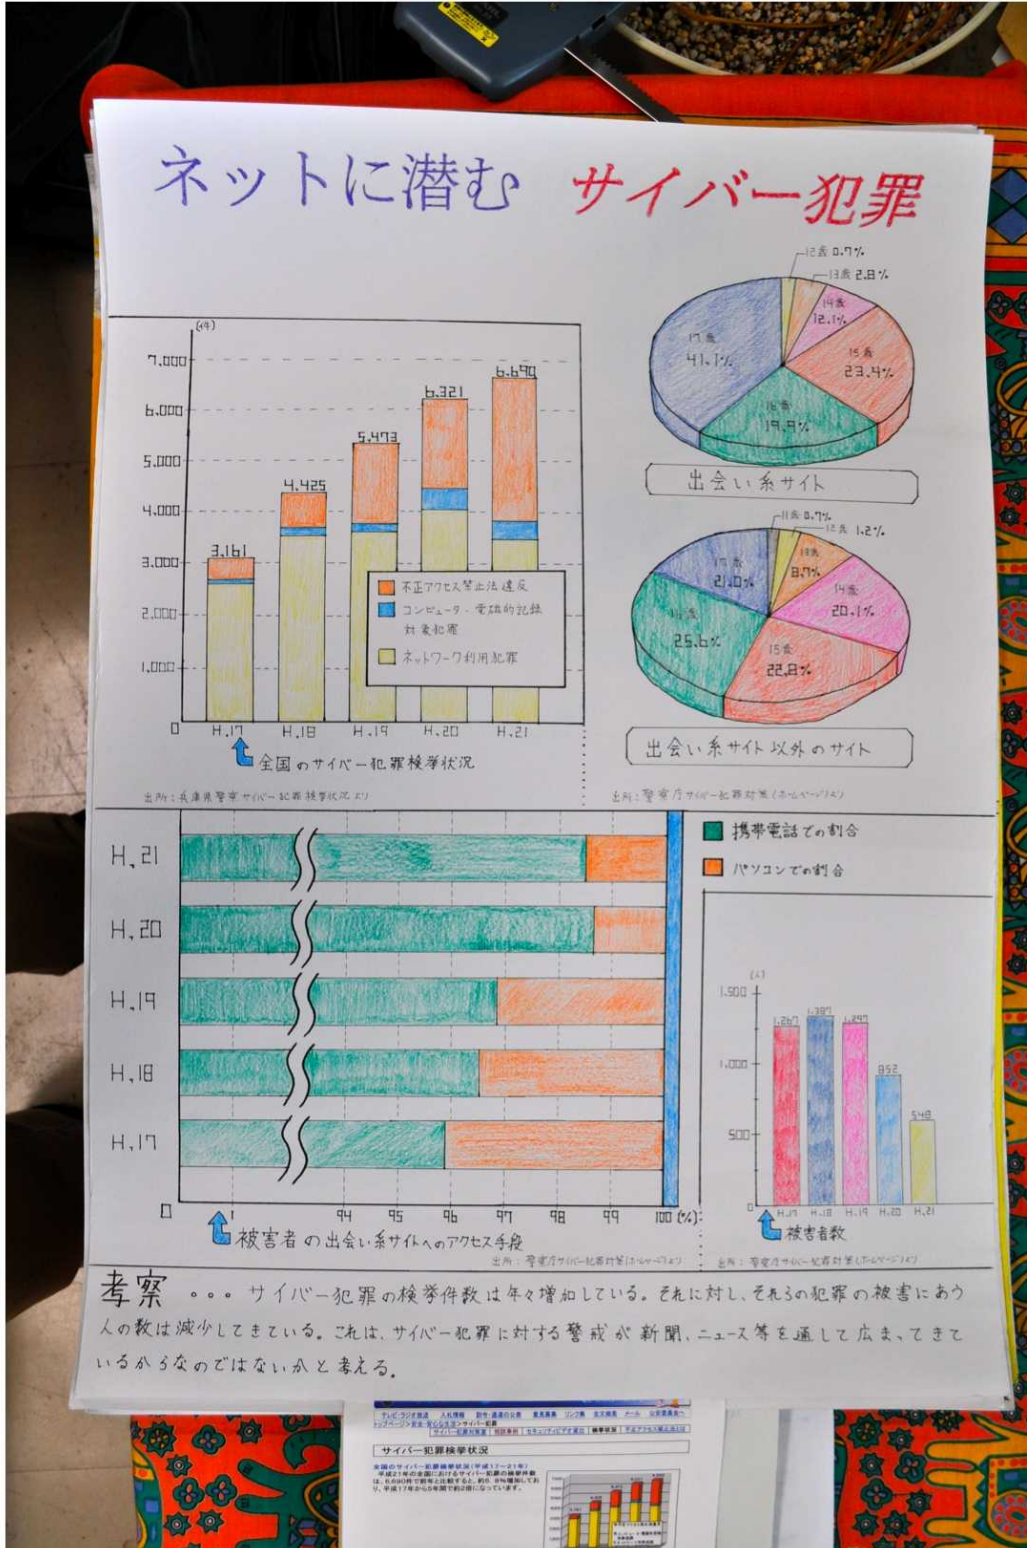 ネットに潜む サイバー犯罪
(件)
7,000
6,000
5,000
4,000
3,000
2,000
1,000
0
3,161
4,425
5,473
6,321
6,690
不正アクセス禁止法違反
コンピュータ・電磁的記録
対象犯罪
ネットワーク利用犯罪
H.17 H.18 H.19 H.20 H.21
全国のサイバー犯罪検挙状況
出所:兵庫県警察サイバー犯罪検挙状況より
12歳 0.7%
13歳 2.8%
14歳
12.1%
15歳
23.4%
16歳
19.9%
17歳
41.1%
出会い系サイト
11歳 0.7%
12歳 1.2%
13歳
8.7%
14歳
20.1%
15歳
22.8%
16歳
25.6%
17歳
21.0%
出会い系サイト以外のサイト
出所:警察庁サイバー犯罪対策(ホームページ)より
H.21
H.20
H.19
H.18
H.17
0 1 94 95 96 97 98 99 100(%)
被害者の出会い系サイトへのアクセス手段
出所:警察庁サイバー犯罪対策(ホームページ)より
携帯電話での割合
パソコンでの割合
(人)
1,500
1,000
500
0
1,267
1,387
1,297
852
548
H.17 H.18 H.19 H.20 H.21
被害者数
出所:警察庁サイバー犯罪対策(ホームページ)より
考察 ・・・ サイバー犯罪の検挙件数は年々増加している。それに対し、それらの犯罪の被害にあう
人の数は減少してきている。これは、サイバー犯罪に対する警戒が新聞、ニュース等を通して広まってきて
いるからなのではないかと考える。
サイバー犯罪検挙状況
全国のサイバー犯罪検挙状況(平成17~21年)
平成21年の全国におけるサイバー犯罪の検挙件数
は、6,690件で前年と比較すると、約5.8%増加してお
り、平成17年から5年間で約2倍になっています。